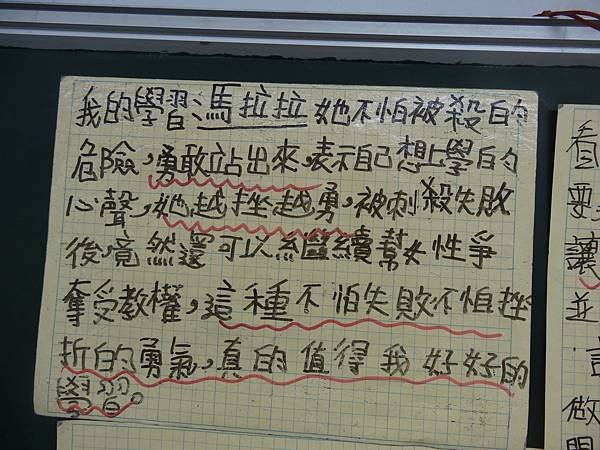 我的學習馮拉拉她不怕被殺的
危險,勇敢站出來,表示自己想上學的
心聲,她越挫越勇,被刺殺失敗
後,竟然還可以繼續幫女性爭
奪受教權,這種不怕失敗不怕挫
折的勇氣,真的值得我好好的
學習。
看
要
讓
並
做